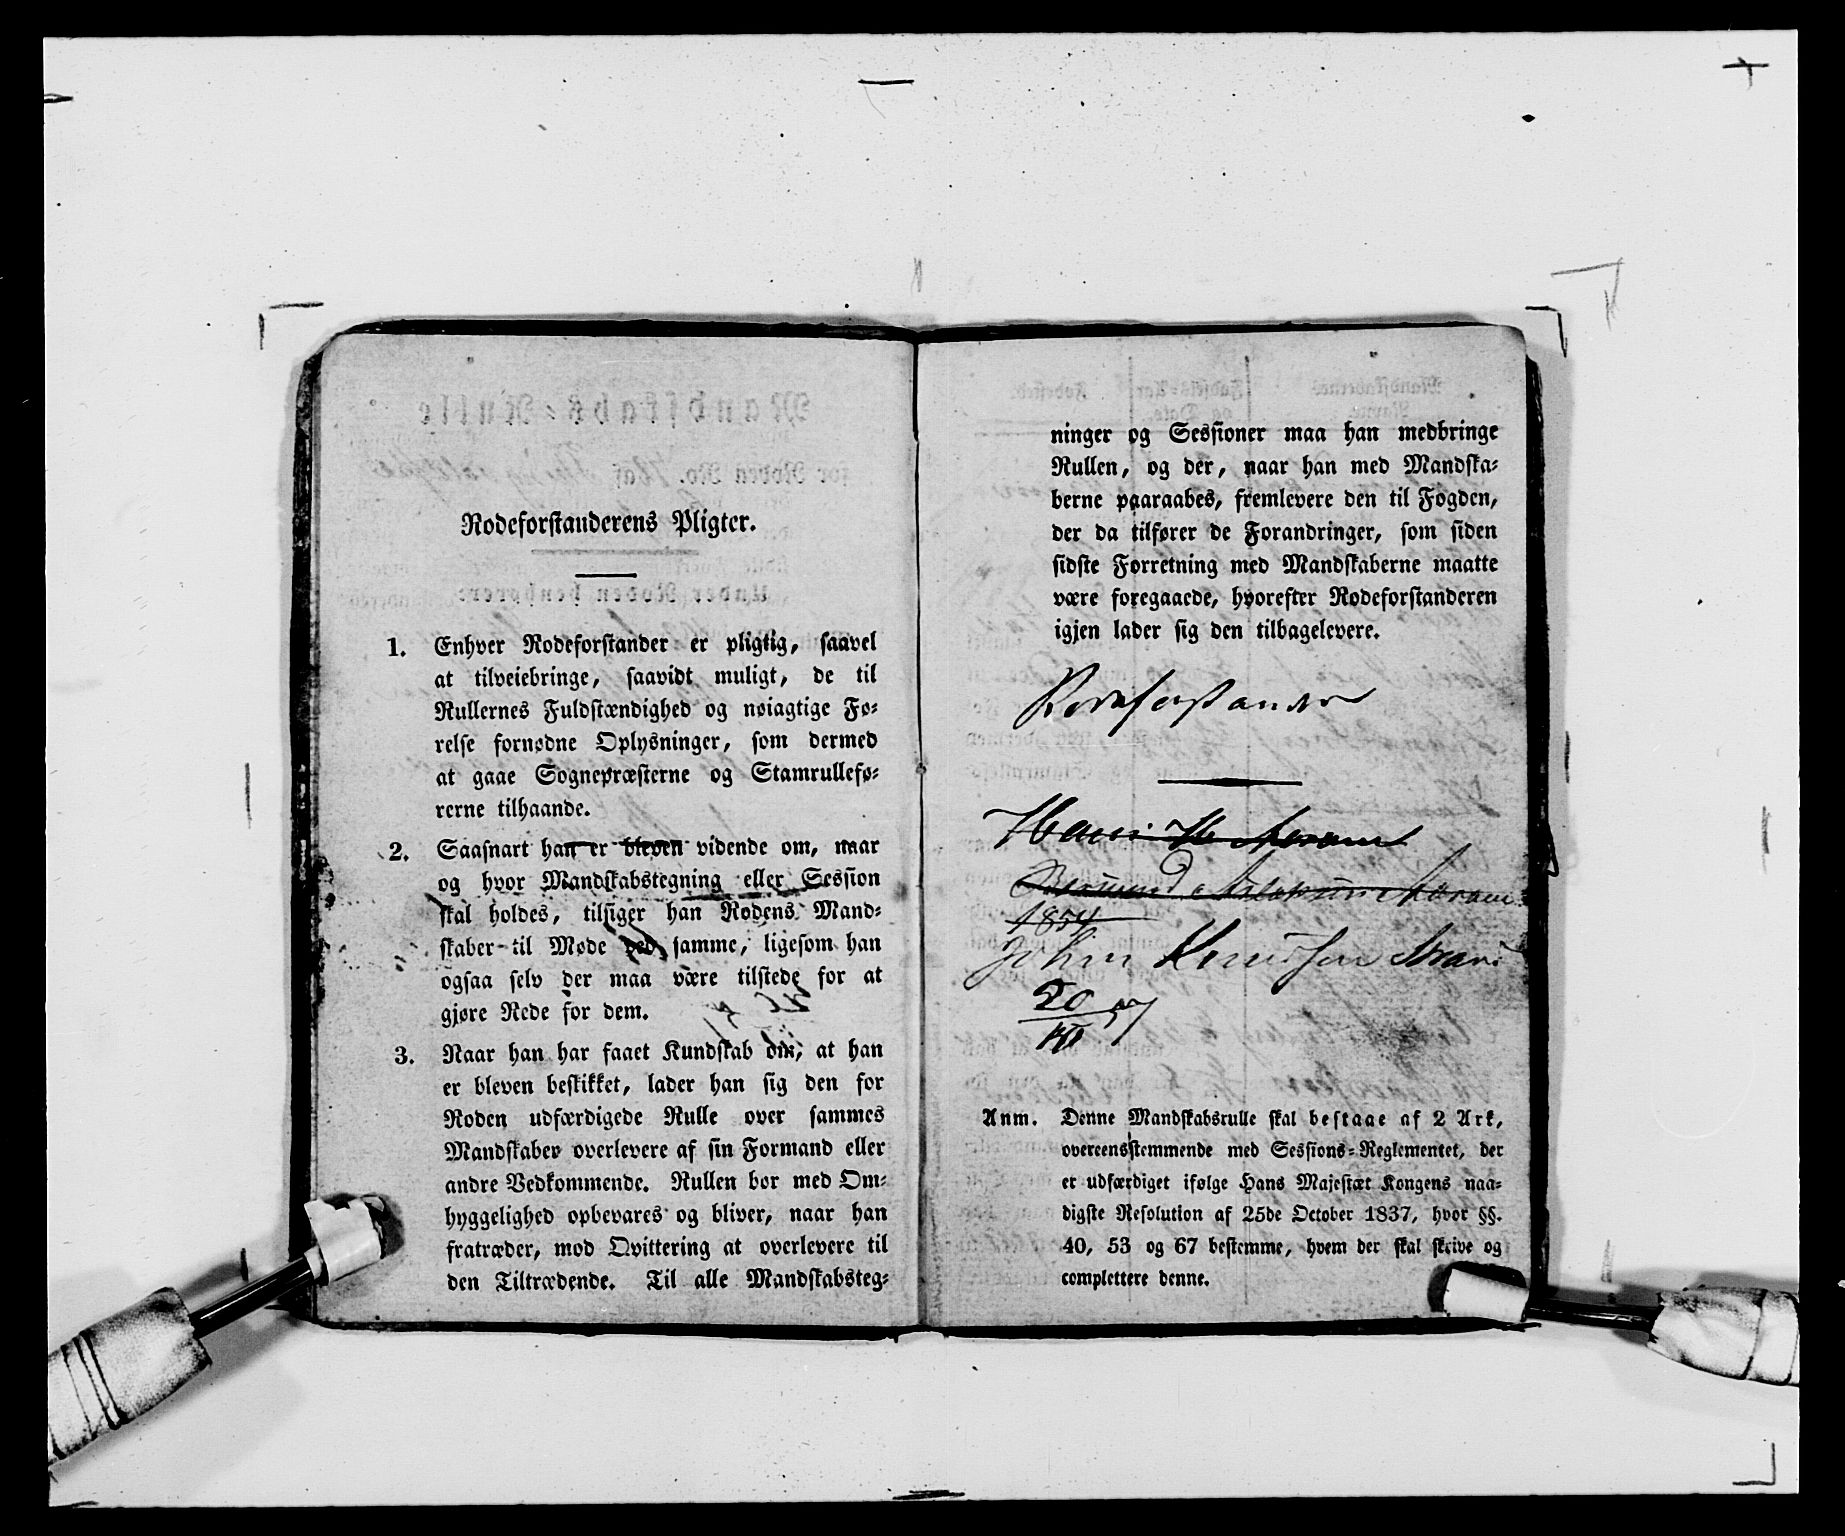 Rodeforstanderens Pligter.
1. Enhver Rodeforstander er pligtig, saavel
at tilveiebringe, saavidt muligt, de til
Rullernes Fuldstændighed og nøiagtige Fø-
relse fornødne Oplysninger, som dermed
at gaae Sognepræsterne og Stamrullefø-
rerne tilhaande.
2. Saasnart han er bleven vidende om, naar
og hvor Mandskabstegning eller Session
skal holdes, tilsiger han Rodens Mand-
skaber til Møde ved samme, ligesom han
ogsaa selv der maa være tilstede for at
gjøre Rede for dem.
3. Naar han har faaet Kundskab om, at han
er bleven beskikket, lader han sig den for
Roden udfærdigede Rulle over sammes
Mandskaber overlevere af sin Formand eller
andre Vedkommende. Rullen bør med Om-
hyggelighed opbevares og bliver, naar han
fratræder, mod Qvittering at overlevere til
den Tiltrædende. Til alle Mandskabsteg-
ninger og Sessioner maa han medbringe
Rullen, og der, naar han med Mandska-
berne paaraabes, fremlevere den til Fogden,
der da tilfører de Forandringer, som siden
sidste Forretning med Mandskaberne maatte
være foregaaede, hvorefter Rodeforstanderen
igjen lader sig den tilbagelevere.
Rodeforstander
Hans H
1854
John Knudsen
20
57
Anm. Denne Mandskabsrulle skal bestaae af 2 Ark,
overeensstemmende med Sessions-Reglementet, der
er udfærdiget ifølge Hans Majestæt Kongens naa-
digste Resolution af 25de October 1837, hvor §§.
40, 53 og 67 bestemme, hvem der skal skrive og
complettere denne.